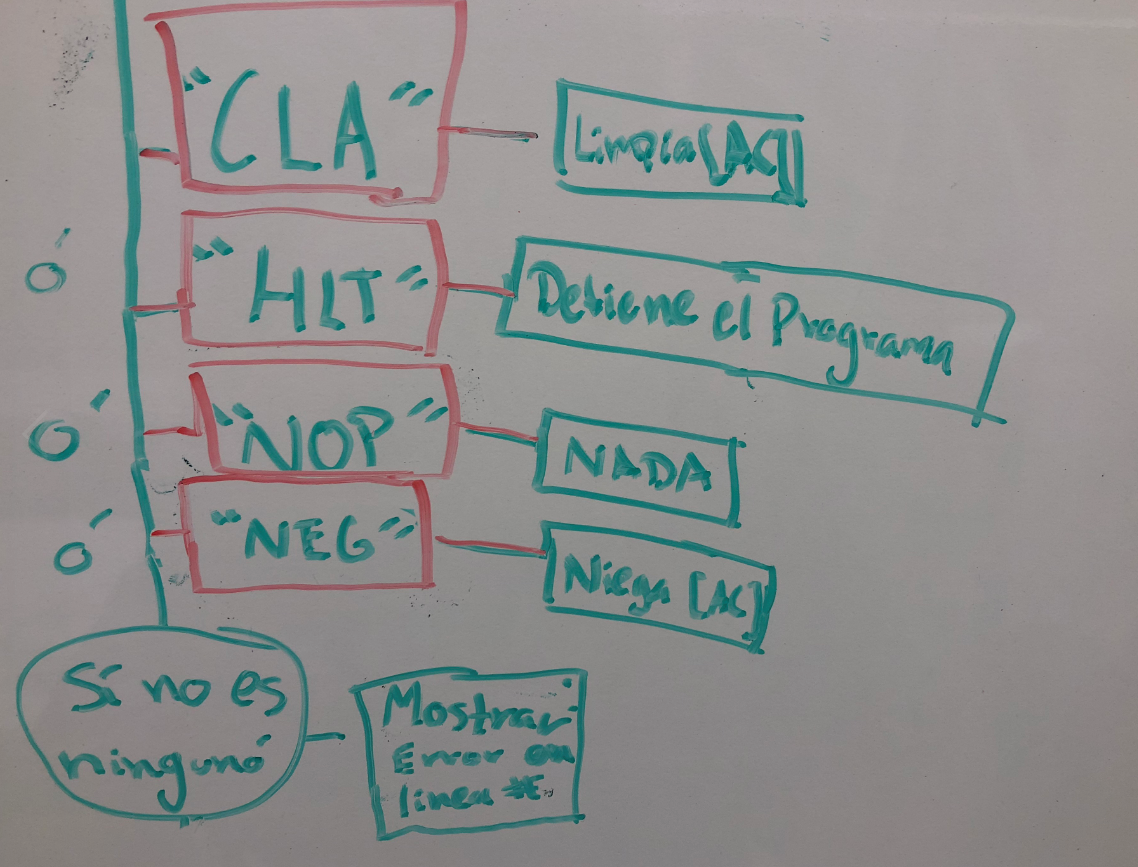 "CLA"
Limpia [AC]
ó
"HLT"
Detiene el Programa
ó
"NOP"
NADA
ó
"NEG"
Niega [AC]
Si no es
ninguno
Mostrar
Error en
linea #E.